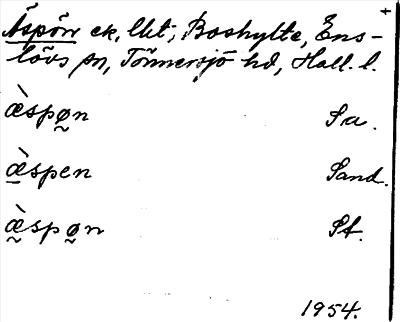 Äspön ek. lht; Boshylte, Ens-
lövs sn, Tönnersjö hd, Hall. l.
æ̀spø̰n Sa.
æ̲̀spen Sand.
æ̰̀spø̰n St.
1954.